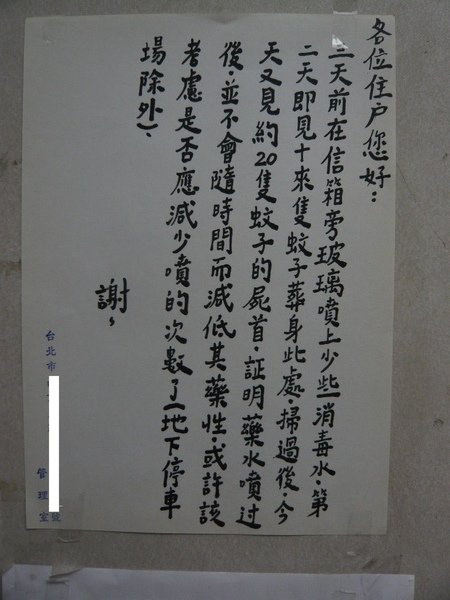 各位住户您好：
三天前在信箱旁玻璃噴上少些消毒水。第
二天即見十來隻蚊子葬身此處。掃過後，今
天又見約20隻蚊子的屍首。証明藥水噴過
後，並不會隨時間而減低其藥性。或許該
考慮是否應減少噴的次數了(地下停車
場除外)、
謝，
台北市
管理室